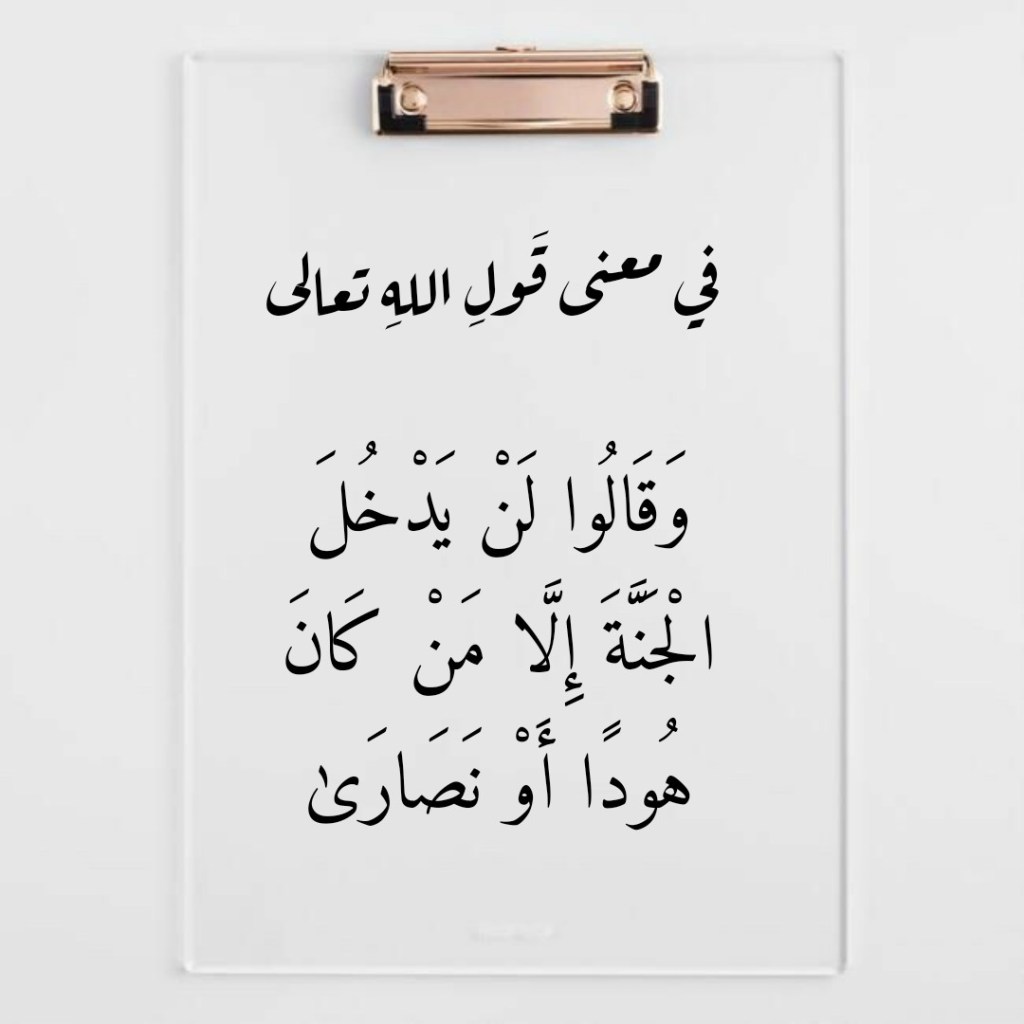 في معنى قَولِ اللهِ تعالى
وَقَالُوا لَنْ يَدْخُلَ
الْجَنَّةَ إِلَّا مَنْ كَانَ
هُودًا أَوْ نَصَارَىٰ